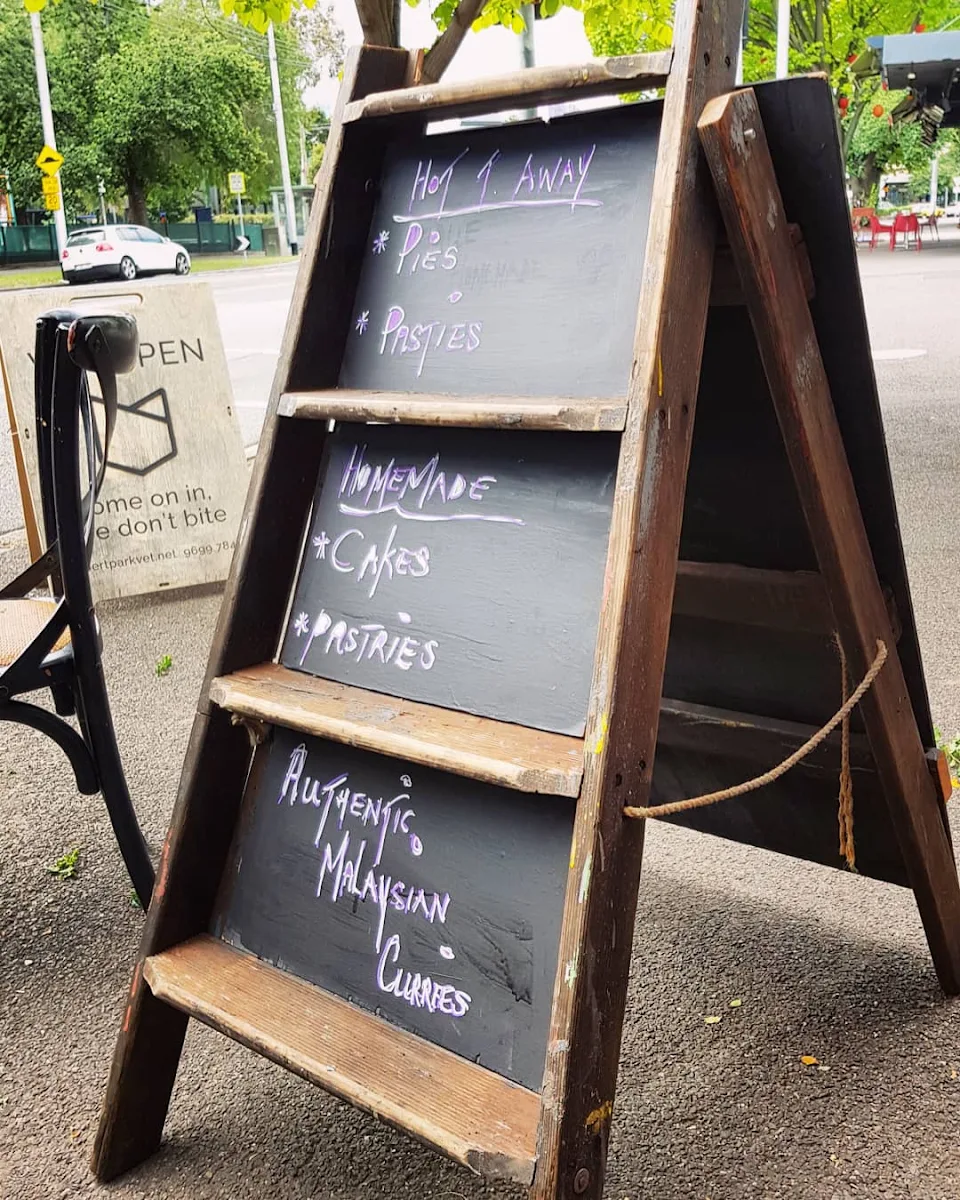 HOT T. AWAY
* PIES
* PASTIES
HOMEMADE
* CAKES
* PASTRIES
AUTHENTIC
MALAYSIAN
CURRIES
PEN
ome on in,
e don't bite
ertparkvet.net 9699 784